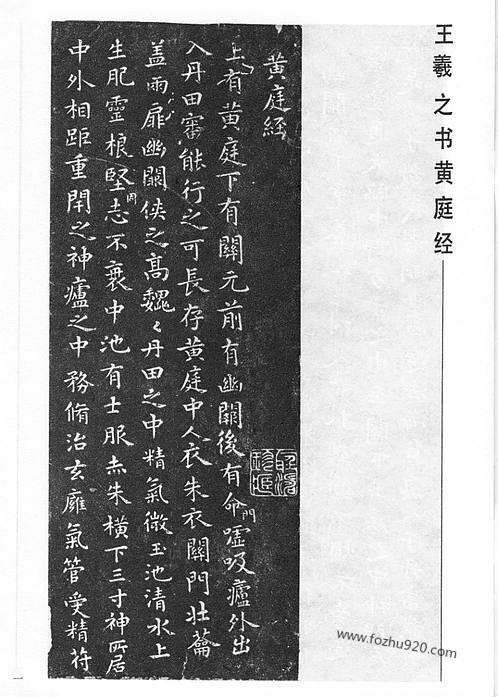 王羲之书黄庭经
黄庭経
上有黄庭下有關元前有幽闕後有命門嘘吸廬外出
入丹田審能行之可長存黄庭中人衣朱衣關門壮蘥
盖兩扉幽闕俠之高魏〻丹田之中精氣微玉池清水上
生肥靈根堅志不衰中池有士服赤朱橫下三寸神所居
中外相距重閇之神廬之中務脩治玄廱氣管受精苻
www.fozhu920.com